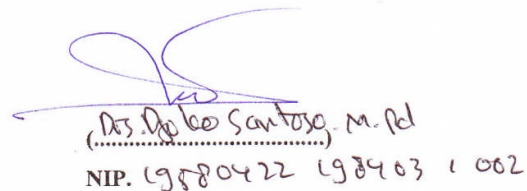 (Drs. Djoko Santoso. M.Pd)
NIP. 19580422 198403 1 002